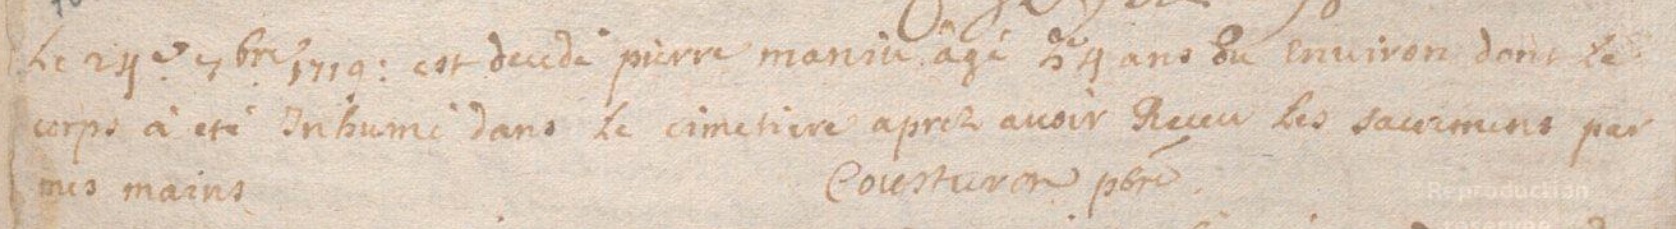 Le 24e 7bre 1719: est decedé pierre maniu âgé 34 ans ou Environ dont Le
corps à eté Inhumé dans Le cimetiere aprez auoir Receu Les sacremens par
mes mains Cousturon pbre.
Reproduction
réservée